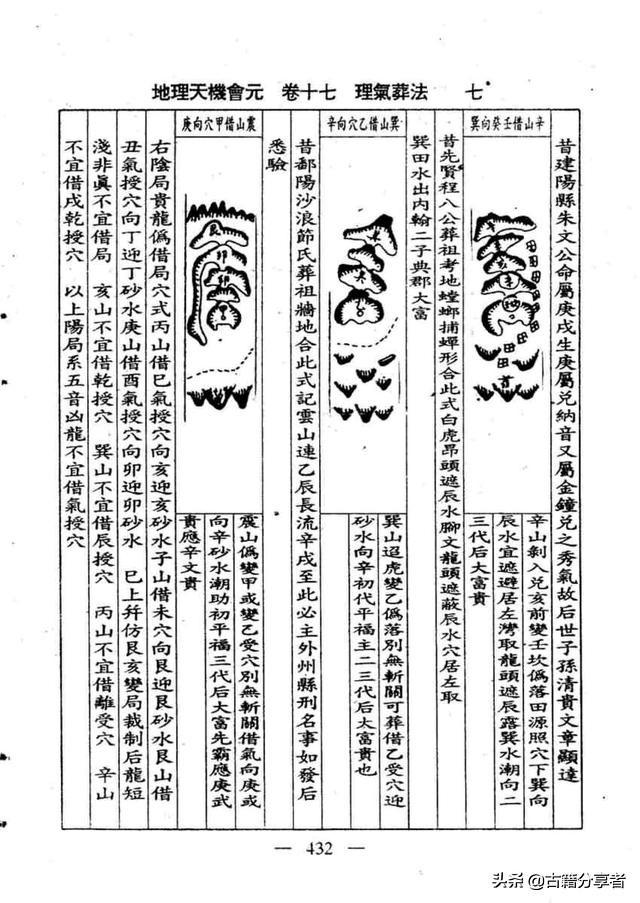 地理天機會元　卷十七　理氣葬法　七
昔建陽縣朱文公命屬庚戌生庚屬兌納音又屬金鐘兌之秀氣故后世子孫清貴文章顯達
辛山借壬癸向巽
辛山剝入兌亥前變壬坎偽落田源照穴下巽向
辰水宜遮避居左灣取龍頭遮辰露巽水潮向二
三代后大富貴
昔先賢程八公葬祖考地螳螂捕蟬形合此式白虎昂頭遮辰水腳文龍頭遮蔽辰水穴居左取
巽田水出內翰二子典郡大富
巽山借乙穴向辛
巽山迢虎變乙偽落別無斬關可葬借乙受穴迎
砂水向辛初代平福主二三代后大富貴也
昔鄱陽沙浪節氏葬祖牆地合此式記雲山連乙辰長流辛戌至此必主外州縣刑名事如發后
悉驗
震山借甲穴向庚
艮
卯
卯
震山偽變甲或變乙受穴別無斬關借氣向庚或
向辛砂水潮助初平福三代后大富先霸應庚武
貴應辛文貴
右陰局貴龍偽借局穴式丙山借巳氣授穴向亥迎亥砂水子山借未穴向艮迎艮砂水艮山借
丑氣授穴向丁迎丁砂水庚山借酉氣授穴向卯迎卯砂水　巳上幷仿艮亥變局裁制后龍短
淺非眞不宜借局　亥山不宜借乾授穴　巽山不宜借辰授穴　丙山不宜借離受穴　辛山
不宜借戌乾授穴　以上陽局系五音凶龍不宜借氣授穴
— 432 —
头条 @古籍分享者